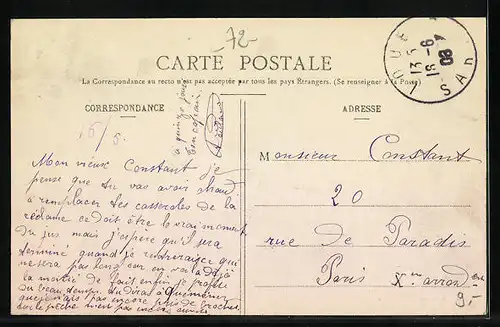 72
CARTE POSTALE
La Correspondance au recto n'est pas acceptée par tous les pays Étrangers. (Se renseigner à la Poste)
CORRESPONDANCE
ADRESSE
à quinze jours
Ton copain
16/5
Mon vieux Constant je
pense que tu vas avoir chaud
à remplacer les casseroles de la
réclame ce doit être le vrai moment
du jus mais j'espère qu'il sera
terminé quand je rentrerai ce qui
ne sera pas long car en voilà déjà
la moitié de fait enfin je profite
du beau temps. tu diras à
que je n'ais pas encore pris de brochet
car la pêche n'est pas encore
Monsieur Constant
20
rue de Paradis
Paris Xme arrondme
9.-
13
16 -6
08